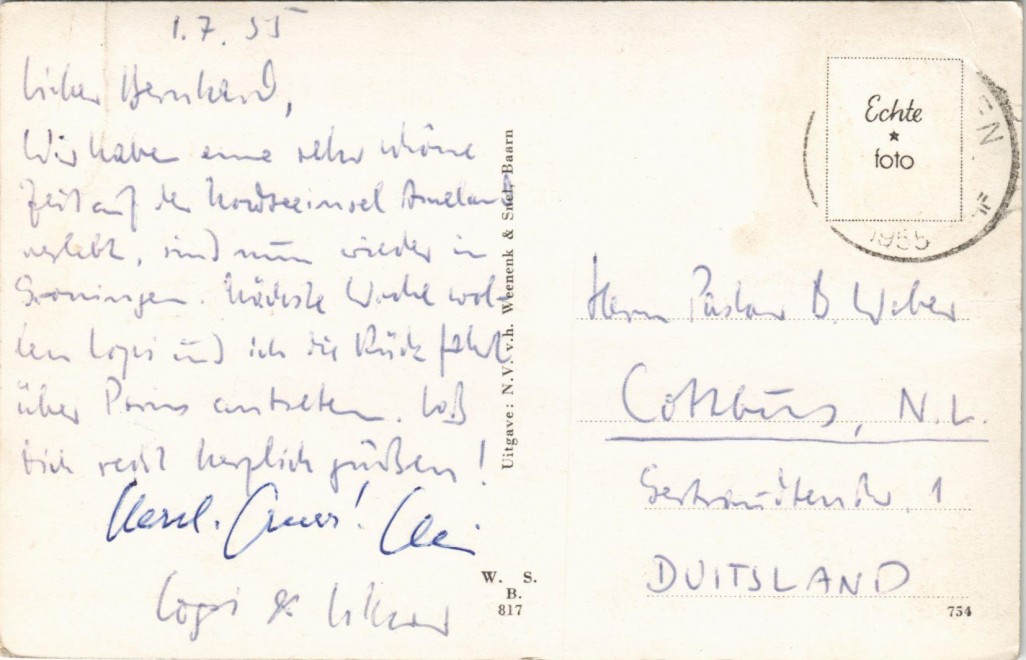 1.7.55
Lieber Bernhard,
Wir haben eine sehr schöne
Zeit auf der Nordseeinsel Ameland
verlebt, sind nun wieder in
Groningen. Nächste Woche wol-
len und ich die Rückfahrt
über antreten. Laß
Dich recht herzlich grüßen!
Herzl.
&
Uitgave: N.V. v.h. Weenenk & Snel, Baarn
W. S.
B.
817
Echte
★
foto
EN
1955
Herrn Pastor B. Weber
Cottbus, N.L.
Gertraudtenstr. 1
DUITSLAND
754